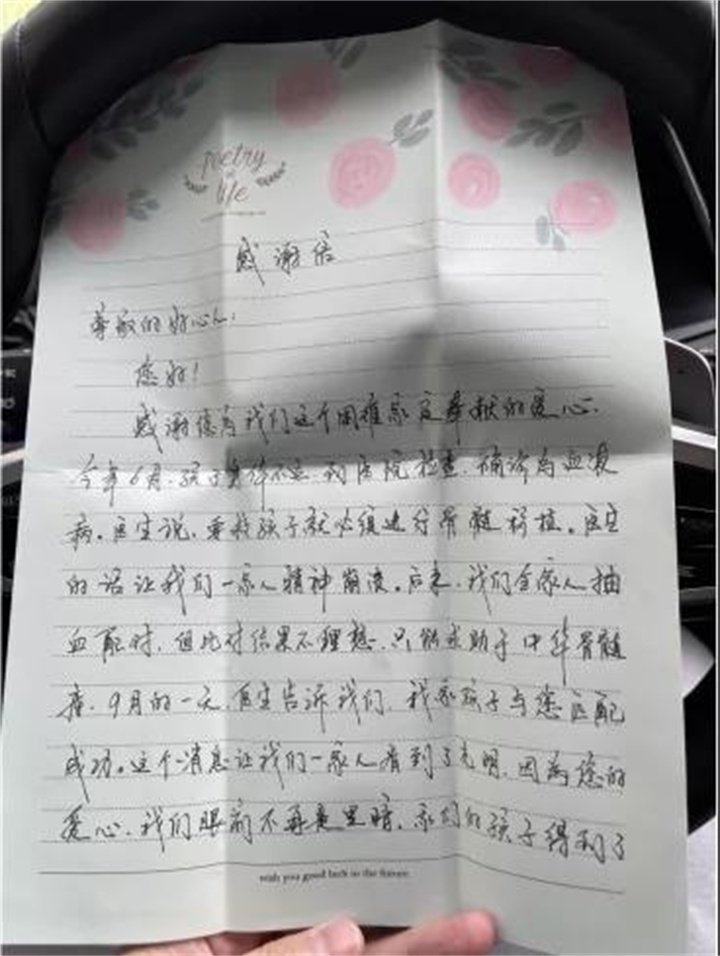 poetry
of
life
感谢信
尊敬的好心人：
您好！
感谢您为我们这个困难家庭奉献的爱心.
今年6月.孩子身体不适.到医院检查.确诊为血液
病。医生说.要救孩子就必须进行骨髓移植。医生
的话让我们一家人精神崩溃。后来.我们全家人抽
血配对.但比对结果不理想.只能求助于中华骨髓
库.9月的一天.医生告诉我们.我家孩子与您匹配
成功。这个消息让我们一家人看到了光明.因为您的
爱心.我们眼前不再是黑暗.我们的孩子得到了
wish you good luck in the future